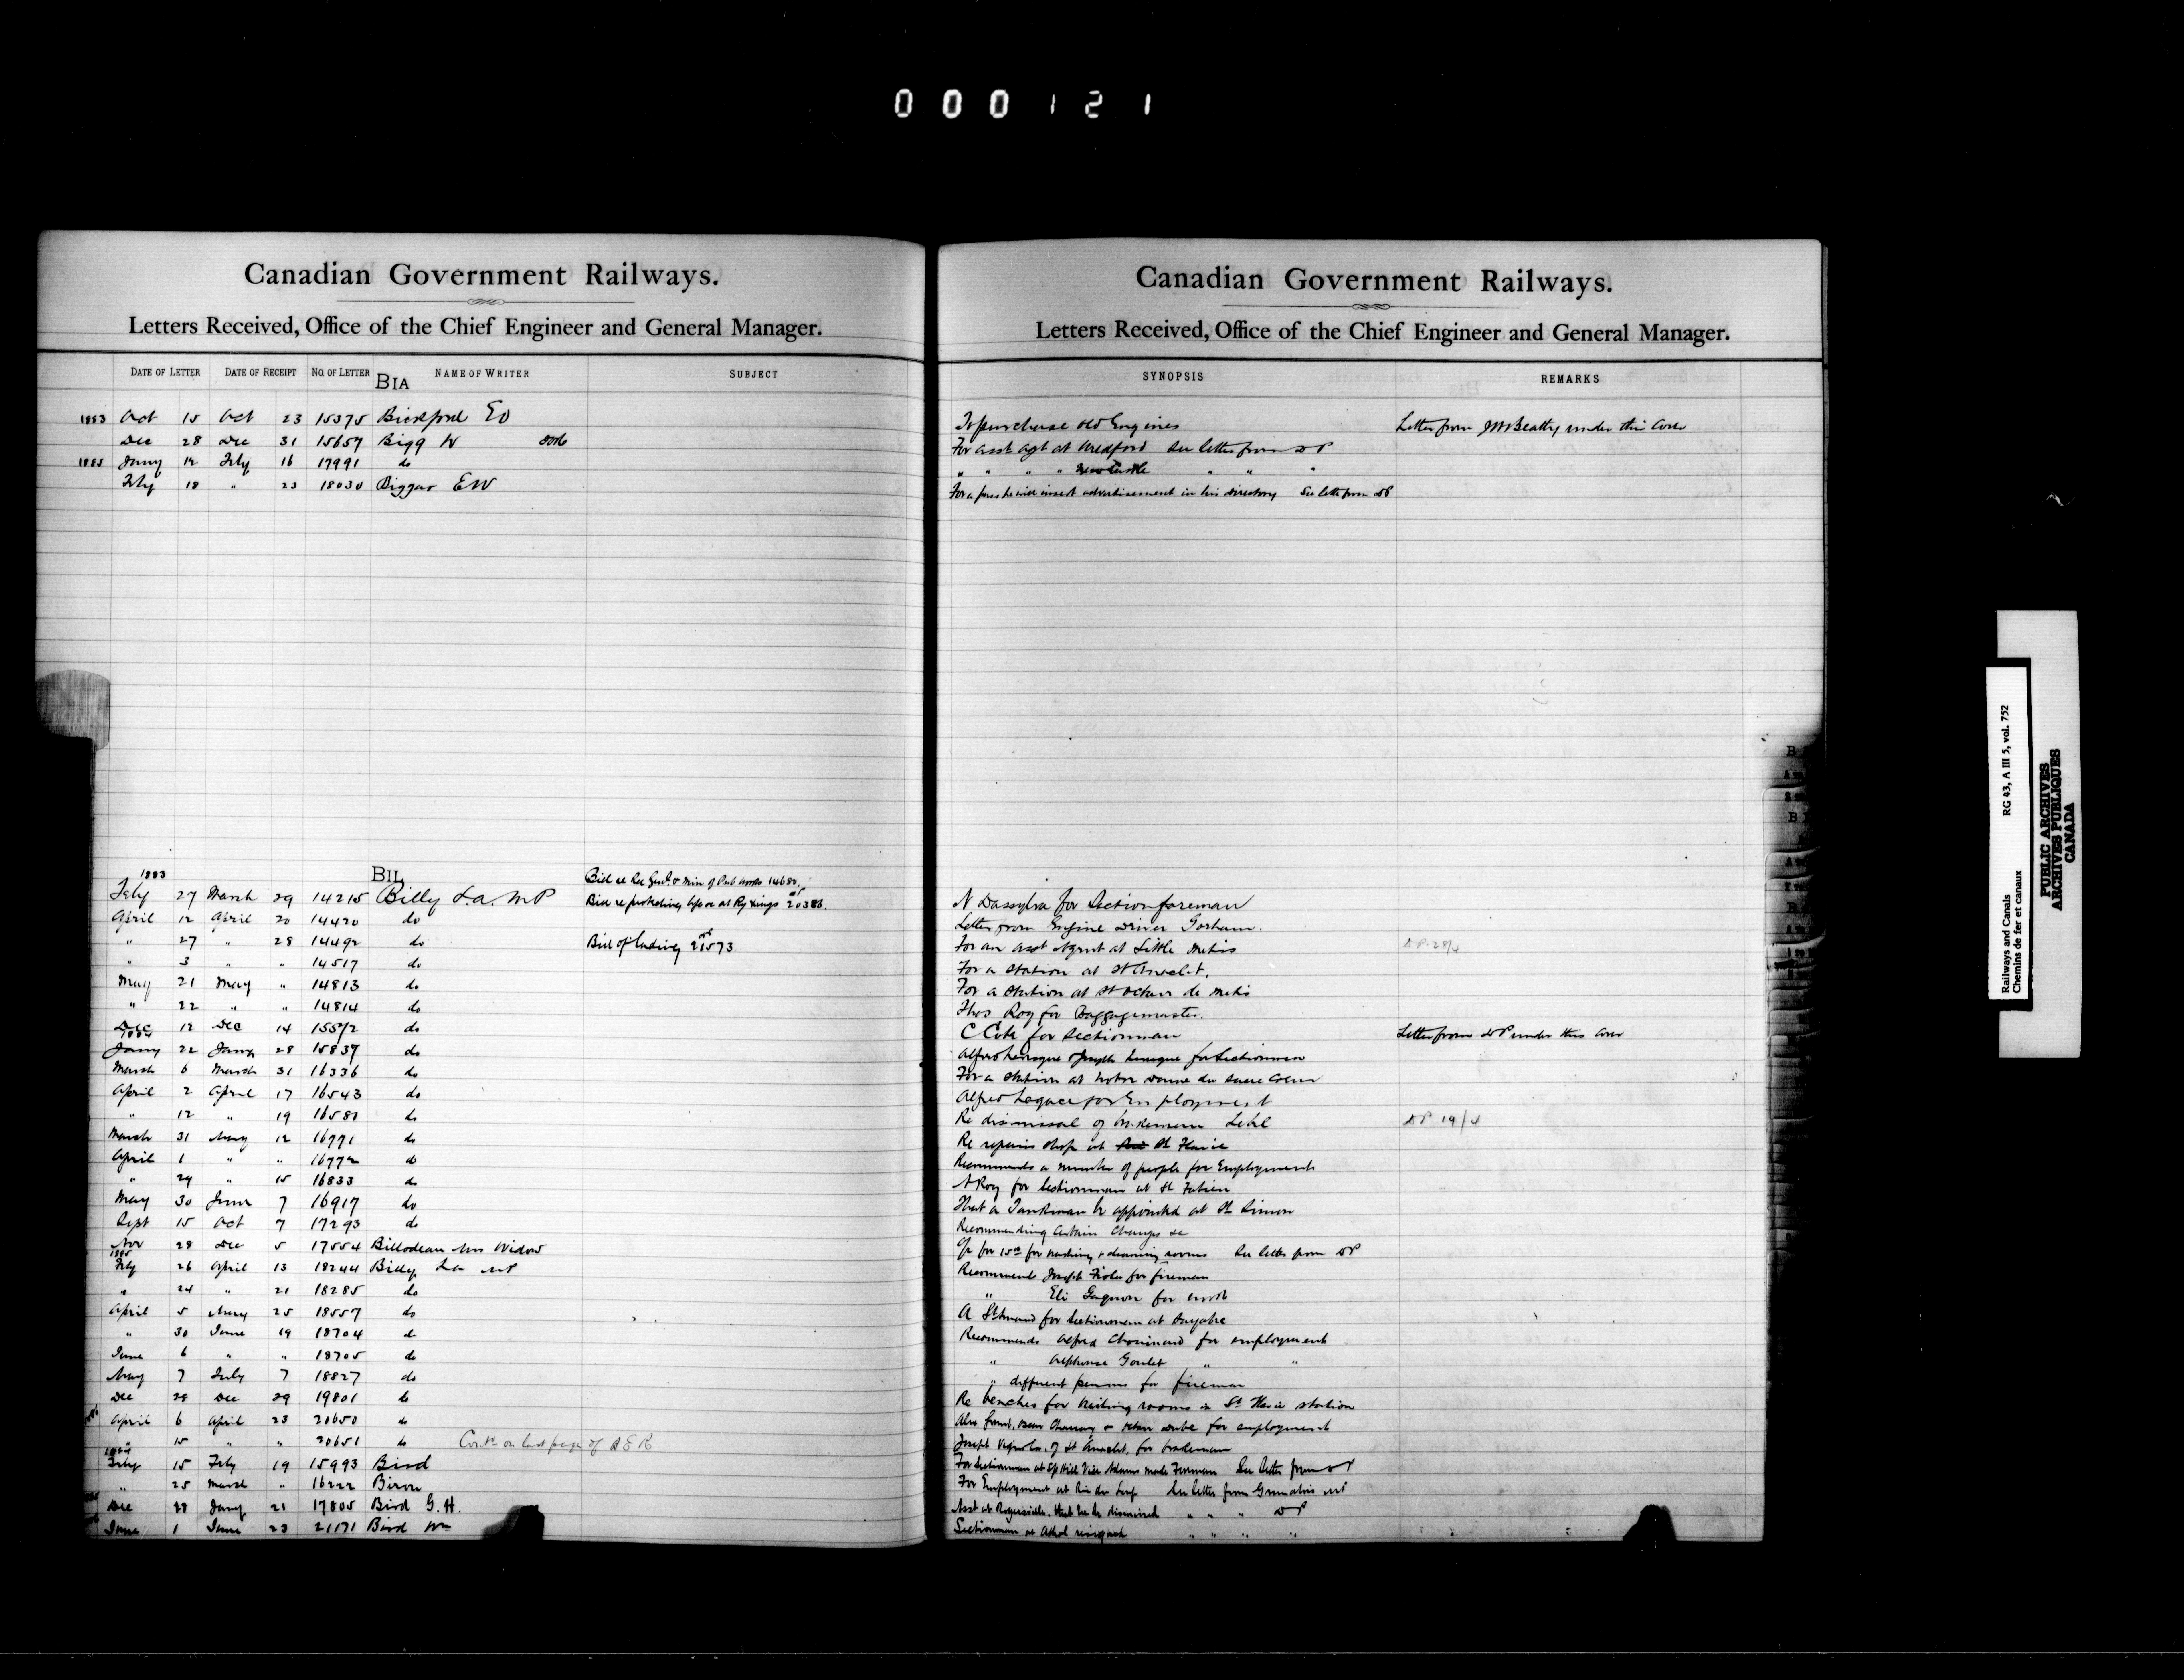 000121
Canadian Government Railways.
Letters Received, Office of the Chief Engineer and General Manager.
DATE OF LETTER DATE OF RECEIPT NO. OF LETTER NAME OF WRITER SUBJECT
BIA
1883 Oct 15 Oct 23 15375 Bickford EO
Dec 28 Dec 31 15657 Bigg W
1885 Jany 12 Feby 16 17991 do
Feby 18 " 23 18030 Biggar EW
BIL
1883
Feby 27 March 29 14215 Billy L.A. MP
April 12 April 20 14420 do
" 27 " 28 14492 do Bill of lading 21573
" 3 " " 14517 do
May 21 May " 14813 do
" 22 " " 14814 do
Dec 12 Dec 14 15572 do
1884
Jany 22 Jany 28 15837 do
March 6 March 31 16336 do
April 2 April 17 16543 do
" 12 " 19 16580 do
March 31 May 12 16771 do
April 1 " " 16772 do
" 29 " 15 16833 do
May 30 June 7 16917 do
Sept 15 Oct 7 17293 do
Nov 28 Dec 5 17554 Billodeau Mrs Widow
1885
Feby 26 April 13 18244 Billy La MP
" 24 " 21 18285 do
April 5 May 25 18557 do
" 30 June 19 18704 do
June 6 " " 18705 do
May 7 July 7 18827 do
Dec 28 Dec 29 19801 do
April 6 April 23 20650 do
" 15 " " 20651 do Contd on last page of
1884
Feby 15 Feby 19 15993 Bird
" 25 March " 16222 Biron
Dec 28 Jany 21 17805 Bird G. H.
June 1 June 23 21171 Bird Wm
Canadian Government Railways.
Letters Received, Office of the Chief Engineer and General Manager.
SYNOPSIS REMARKS
To purchase old Engines Letter from JW Beatty under this cover
For asst agt at Medford See letter from DP
" " " " Newcastle " " "
For a pass he will insert advertisement in his directory See letter from DP
N Dassylva for Section foreman
Letter from Engine Driver Gorham.
For an asst Agent at Little Metis DP 28/4
For a station at St Anaclet.
For a station at St Octave de Metis
Thos Roy for Baggagemaster.
C Cote for Sectionman Letter from DP under this cover
Alfred Levesque Joseph Levesque for Sectionmen
For a station at Notre Dame du Sacre Coeur
Alfred Lagace for Employment
Re dismissal of brakeman Lebel DP 19/4
Re repairs shop at St Flavie
Recommends a number of people for Employment
N Roy for Sectionman at St Fabien
That a Tankman be appointed at St Simon
Recommending Certain Changes &c
for washing & cleaning rooms See letter from DP
Recommends Joseph Fiola for fireman
" Eli Gagnon for work
A St Amand for Sectionman at Sayabec
Recommends Alfred Chouinard for employment
" Alphonse Goulet " "
" different persons for fireman
Re benches for waiting rooms in St Flavie station
for employment
Joseph of St Anaclet, for brakeman
For Sectionman at Sp Hill Vice Adams made Foreman See letter from DP
For Employment at Riv du Loup See letter from MP
Asst at Rogersville, that he be dismissed " " " DP
Sectionman at Athol " " " "
Railways and Canals RG 43, A III 5, vol. 752
Chemins de fer et canaux
PUBLIC ARCHIVES
ARCHIVES PUBLIQUES
CANADA